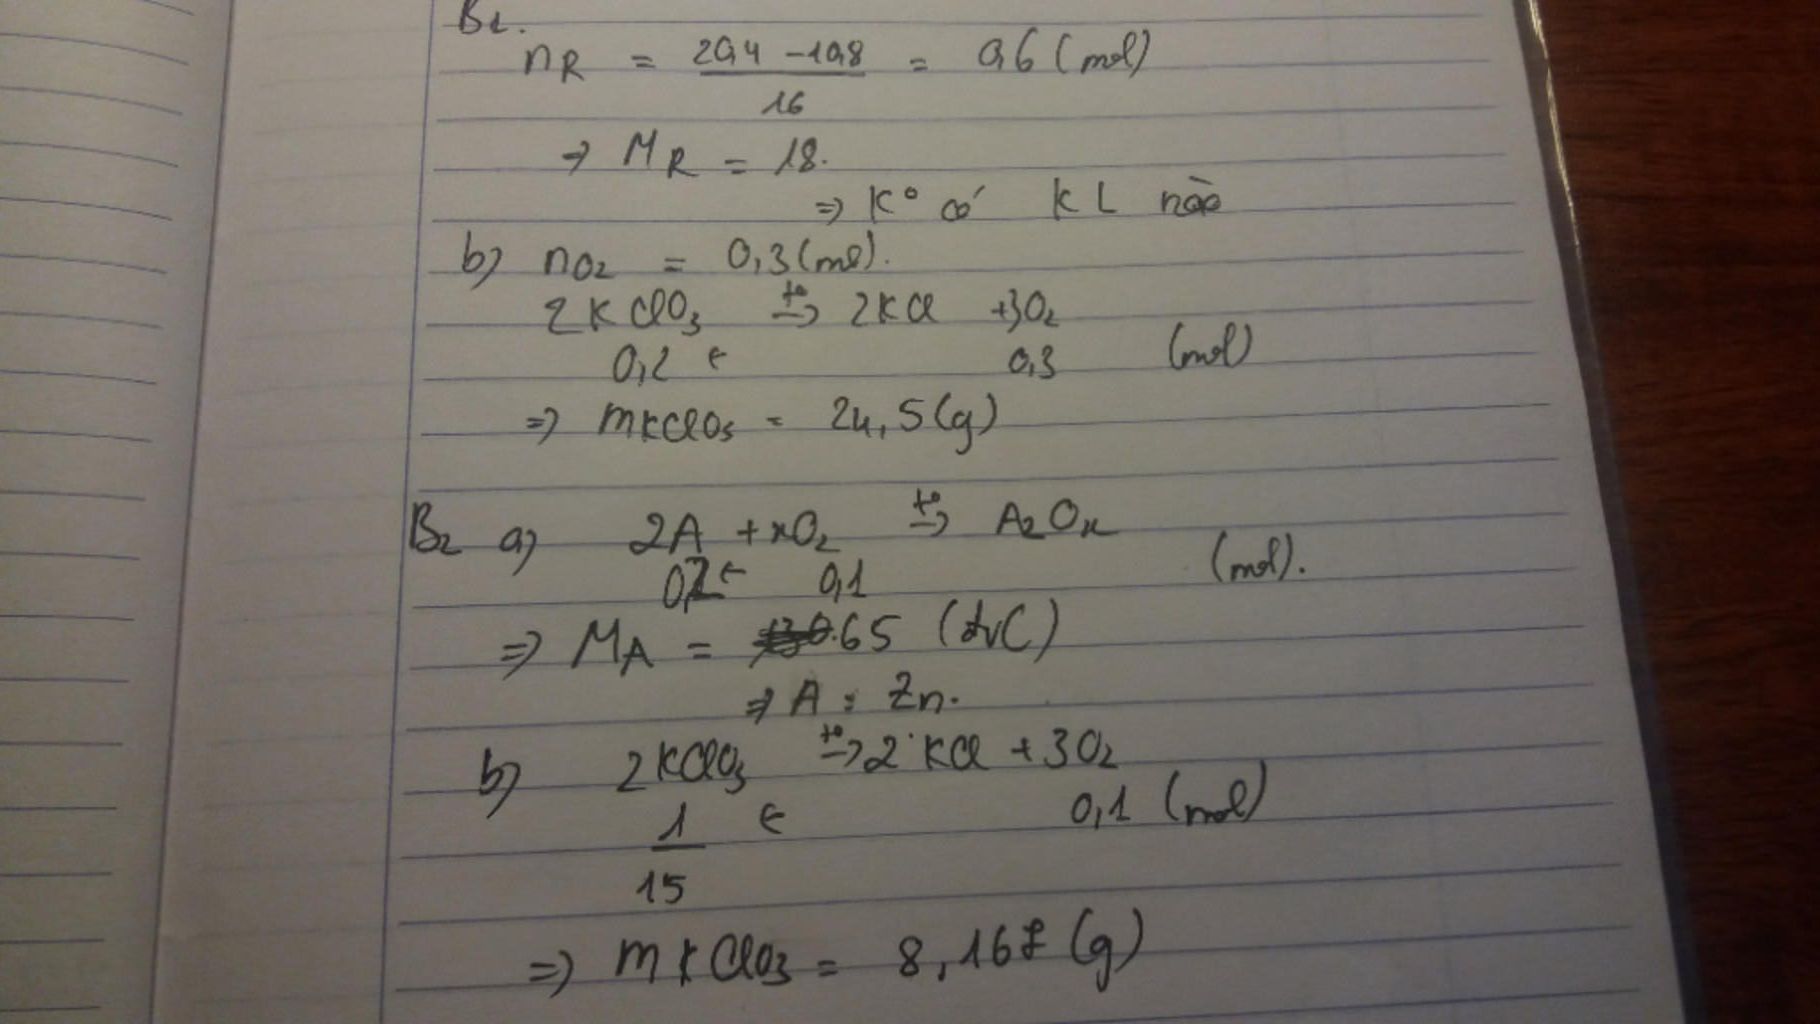 B1.
nR = 20,4 - 10,8 / 16 = 0,6 (mol)
→ MR = 18.
⇒ K° có KL nào
b) nO2 = 0,3 (mol).
2KClO3 t°→ 2KCl + 3O2
0,2 ← 0,3 (mol)
⇒ mKClO3 = 24,5 (g)
B2 a) 2A + xO2 t°→ A2Ox
0,2 ← 0,1 (mol).
⇒ MA = 65 (đvC)
⇒ A : Zn.
b) 2KClO3 t°→ 2 KCl + 3O2
1/15 ← 0,1 (mol)
⇒ mKClO3 = 8,167 (g)